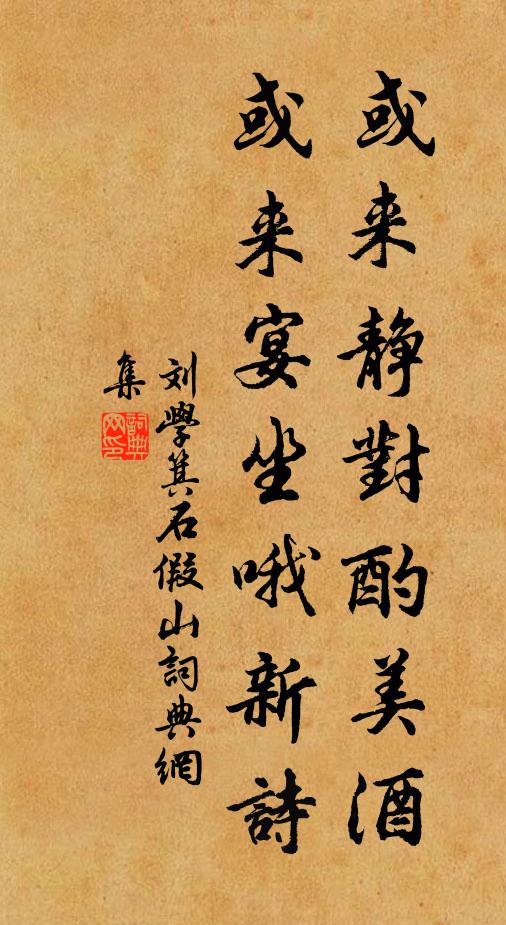 或来静對酌美酒
或来宴坐哦新詩
刘學箕石假山詞典網
集
詞典
网印